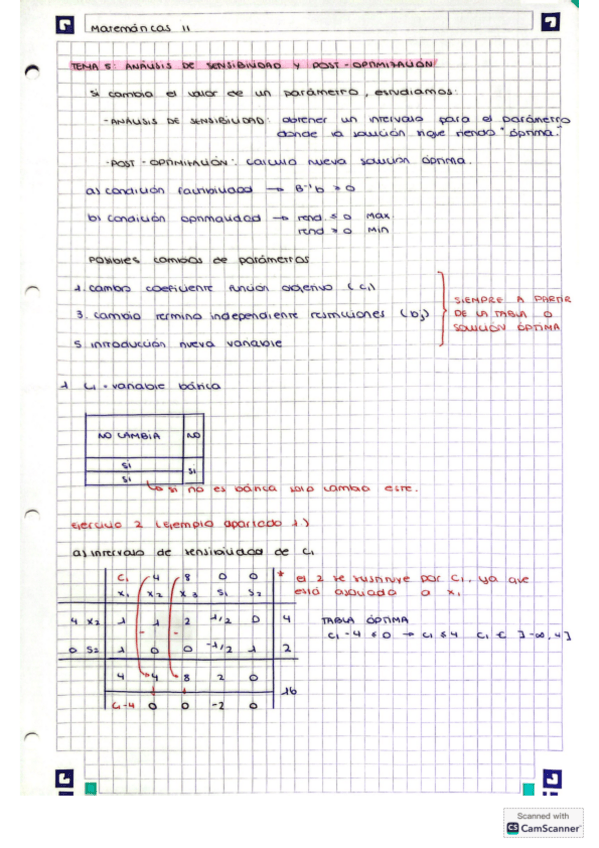 Matemáticas II
TEMA 5: ANÁLISIS DE SENSIBILIDAD Y POST-OPTIMIZACIÓN
Si cambia el valor de un parámetro, estudiamos:
-ANÁLISIS DE SENSIBILIDAD: obtener un intervalo para el parámetro
donde la solución sigue siendo "óptima."
-POST-OPTIMIZACIÓN: calculo nueva solución óptima.
a) condición factibilidad → B⁻¹b ≥ 0
b) condición optimalidad → rend. ≤ 0 Max.
rend ≥ 0 Min
Posibles cambios de parámetros
1. cambio coeficiente función objetivo (ci)
3. cambio termino independiente restricciones (bj)
5 introducción nueva variable
SIEMPRE A PARTIR
DE LA TABLA O
SOLUCIÓN ÓPTIMA
1 Ci = variable básica
NO CAMBIA NO
SI
SI SI
si no es básica solo cambio este.
Ejercicio 2 (ejemplo apartado 1)
a) intervalo de sensibilidad de C1
C1 4 8 0 0
x1 x2 x3 S1 S2
4 x2 1 1 2 1/2 0 4
0 S2 1 0 0 -1/2 1 2
4 4 8 2 0
16
C1-4 0 0 -2 0
* el 2 se sustituye por C1, ya que
está asociado a x1
TABLA ÓPTIMA
C1-4 ≤ 0 → C1 ≤ 4 C1 ∈ ]-∞, 4]
Scanned with
CS CamScanner